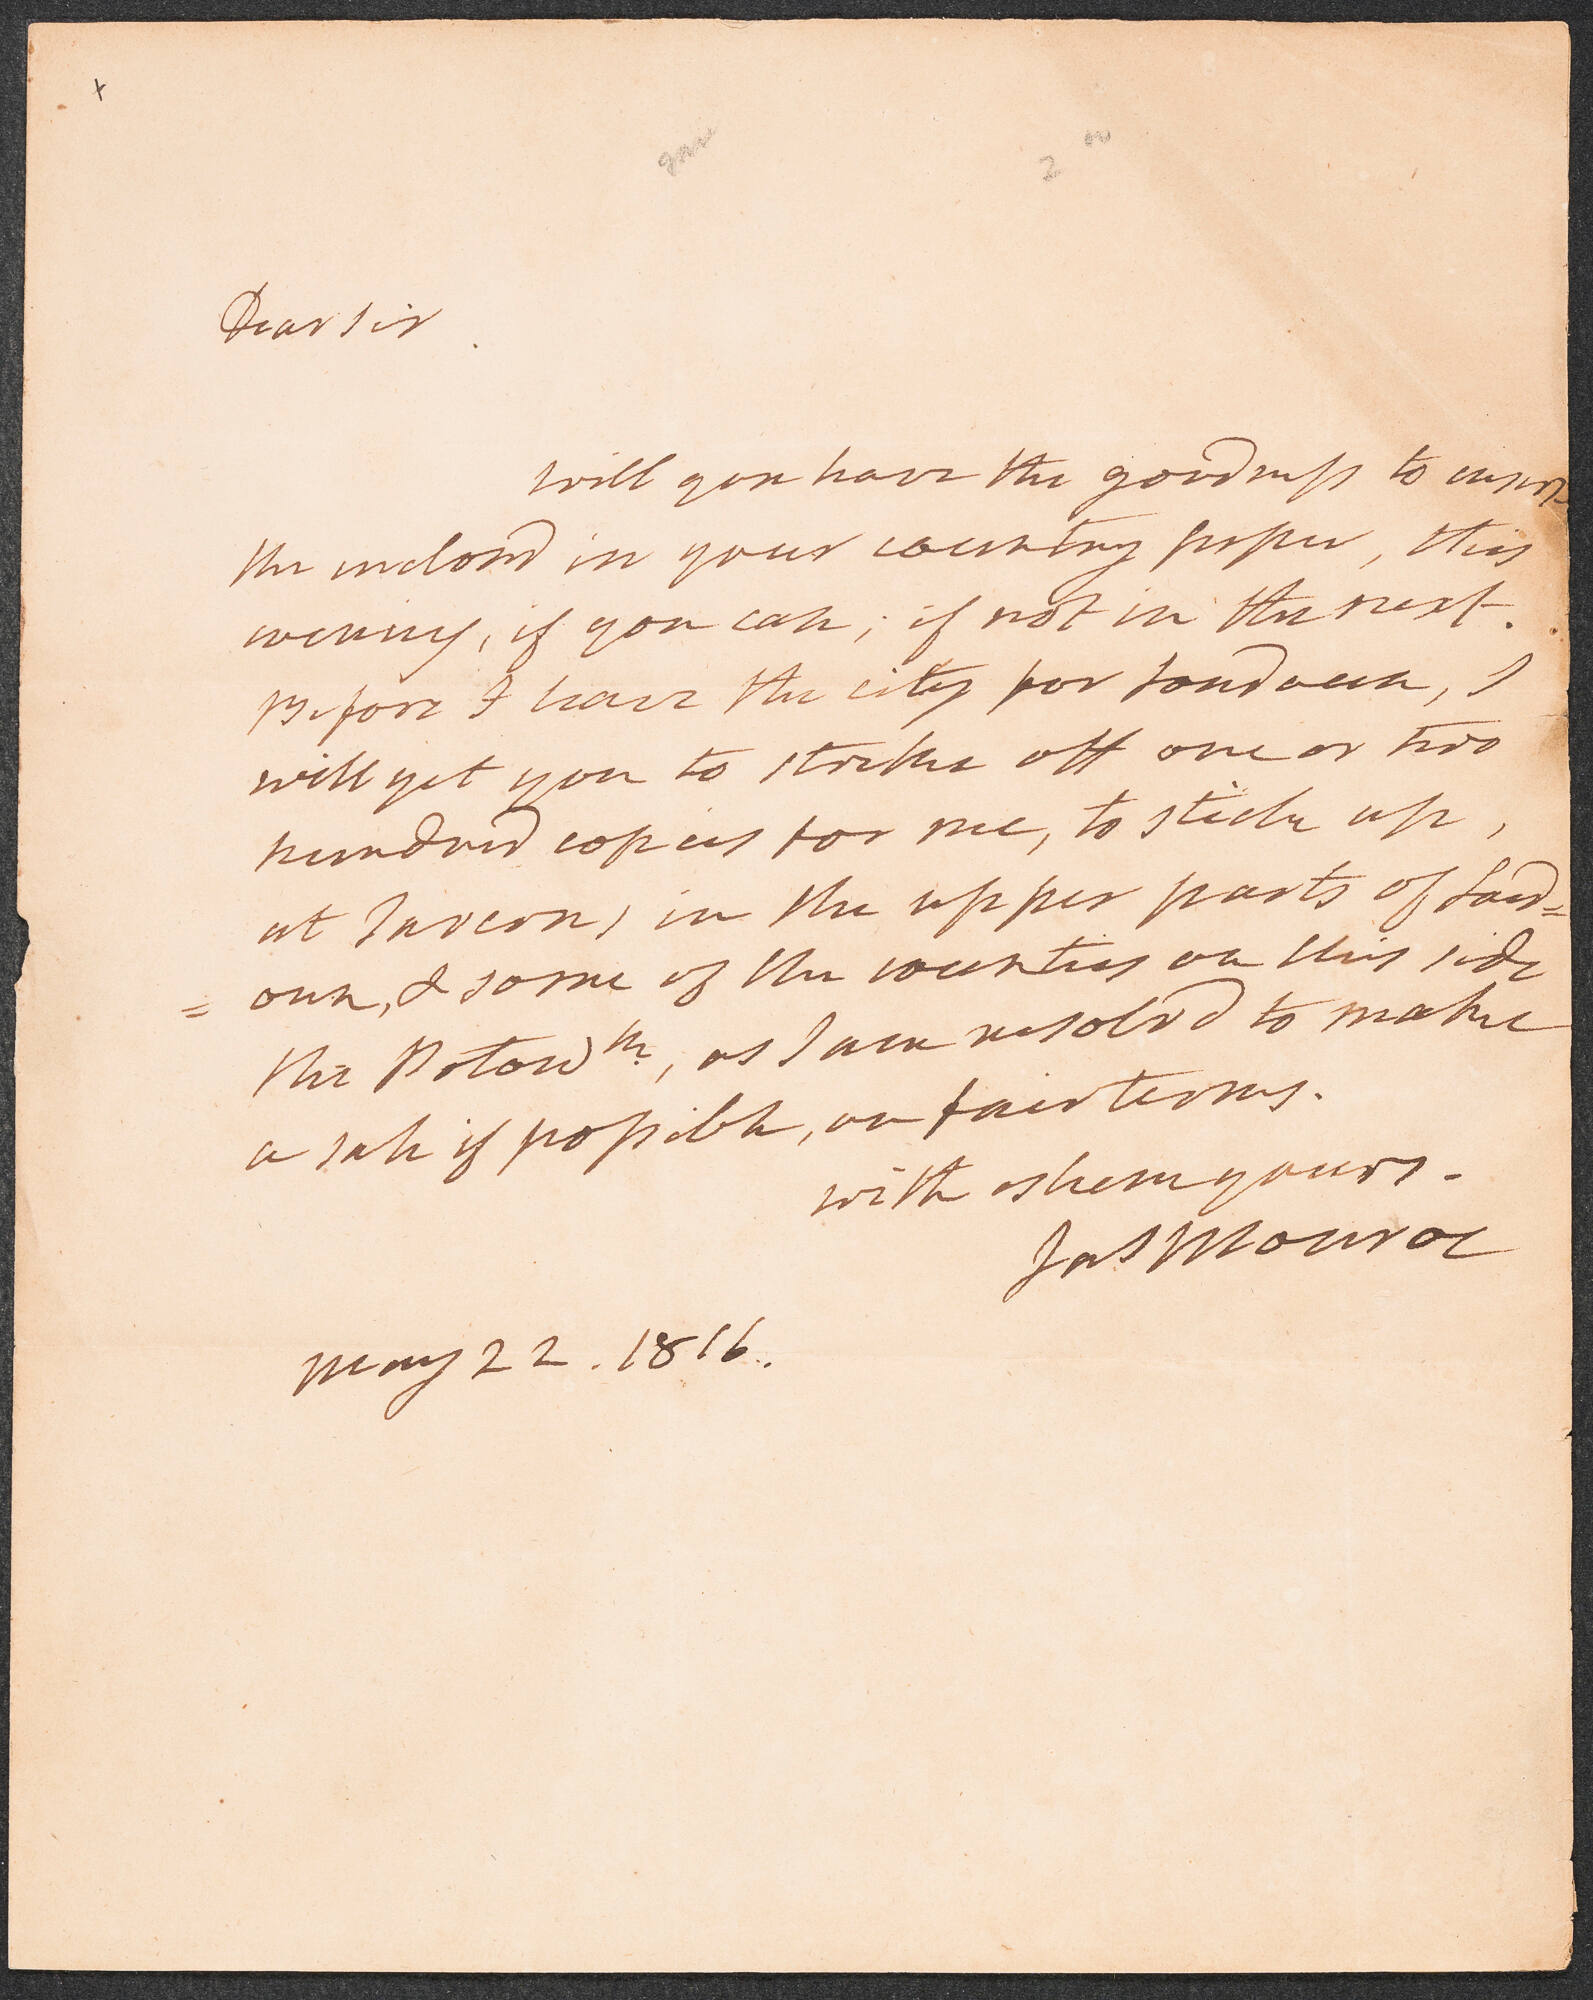 Dear Sir
Will you have the goodness to insert
the inclosd in your country paper, this
evening, if you can; if not in the next.
Before I leave the city for Loudoun, I
will get you to strike off one or two
hundred copies for me, to stick up,
at taverns, in the upper parts of Loud=
=oun, & some of the counties on this side
the Potowk, as I am resolvd to make
a sale if possible, on fair terms.
with esteem yours.
Jas Monroe
May 22. 1816.